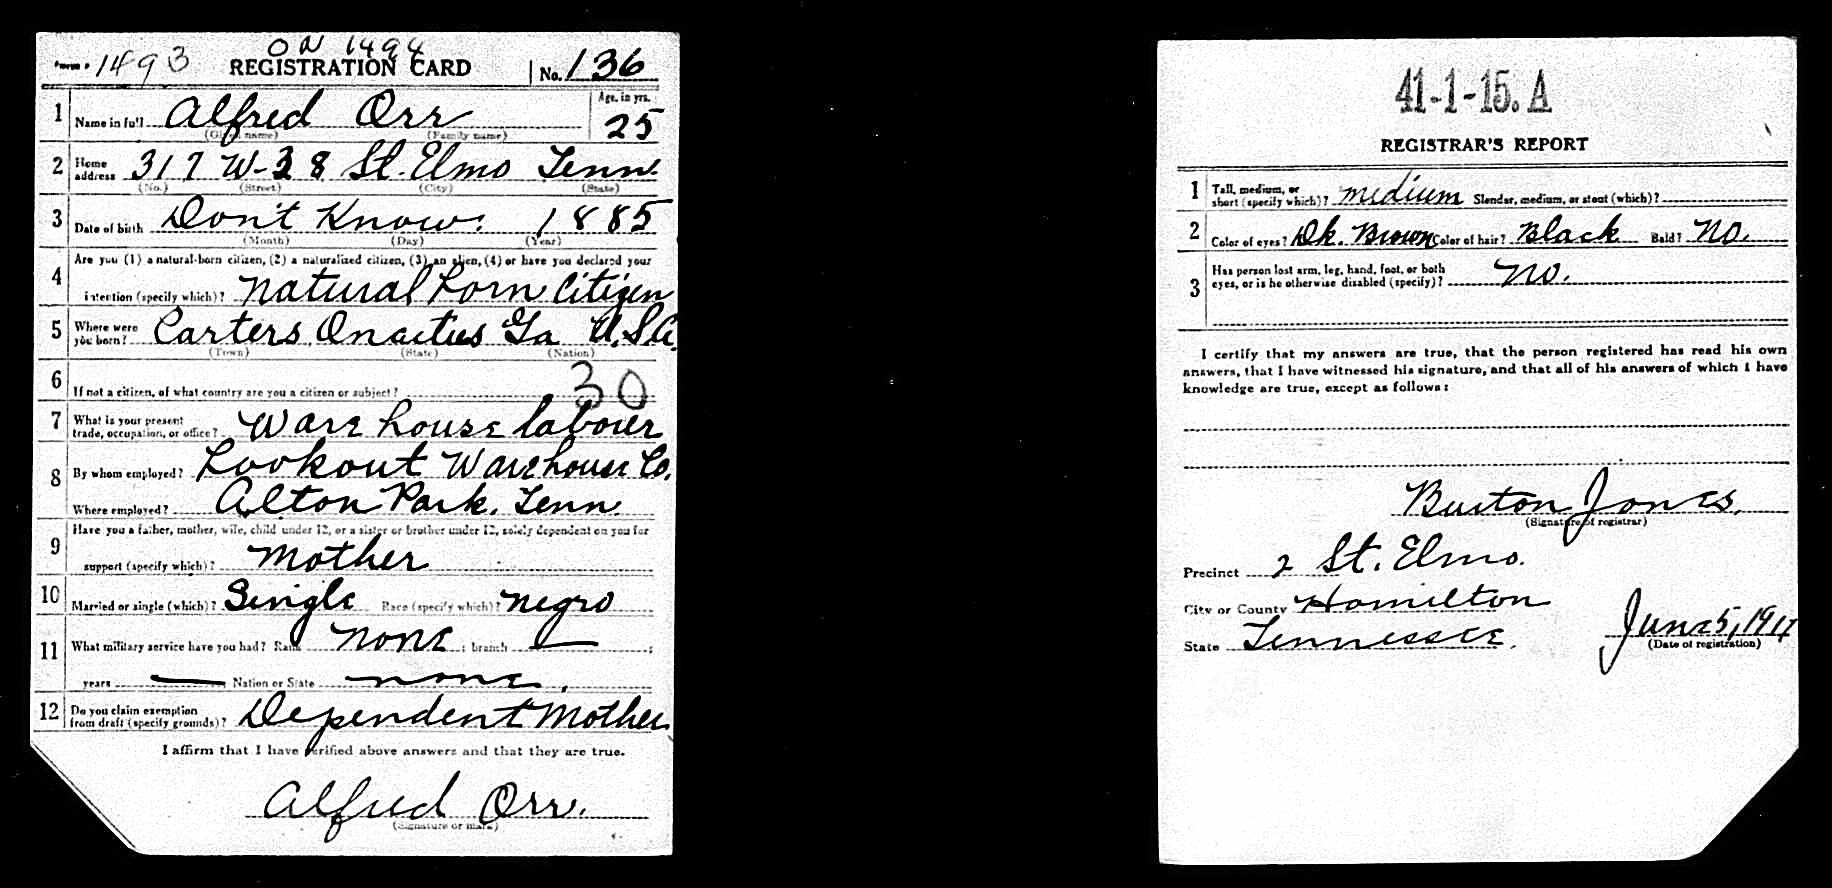 Form 1 1493 on 1494 REGISTRATION CARD No. 136
1 Name in full Alfred Orr Age, in yrs. 25
(Given name) (Family name)
2 Home address 317 W-38 St. Elmo Tenn.
(No.) (Street) (City) (State)
3 Date of birth Don't Know. 1885
(Month) (Day) (Year)
4 Are you (1) a natural-born citizen, (2) a naturalized citizen, (3) an alien, (4) or have you declared your
intention (specify which)? Natural born Citizen
5 Where were you born? Carters Ga U.S.A.
(Town) (State) (Nation)
6 If not a citizen, of what country are you a citizen or subject? 30
7 What is your present trade, occupation, or office? Ware house labouer
8 By whom employed? Lookout Warehouse Co.
Where employed? Alton Park. Tenn
9 Have you a father, mother, wife, child under 12, or a sister or brother under 12, solely dependent on you for
support (specify which)? Mother
10 Married or single (which)? Single Race (specify which)? Negro
11 What military service have you had? Rank none ; branch — ;
years — Nation or State none.
12 Do you claim exemption from draft (specify grounds)? Dependent Mother
I affirm that I have verified above answers and that they are true.
Alfred Orr.
(Signature or mark)
41-1-15. A
REGISTRAR'S REPORT
1 Tall, medium, or short (specify which)? medium Slender, medium, or stout (which)?
2 Color of eyes? Dk. Brown Color of hair? Black Bald? No.
3 Has person lost arm, leg, hand, foot, or both eyes, or is he otherwise disabled (specify)? No.
I certify that my answers are true, that the person registered has read his own
answers, that I have witnessed his signature, and that all of his answers of which I have
knowledge are true, except as follows:
Burton Jones.
(Signature of registrar)
Precinct 2 St. Elmo.
City or County Hamilton
State Tennessee. June 5, 1917
(Date of registration)